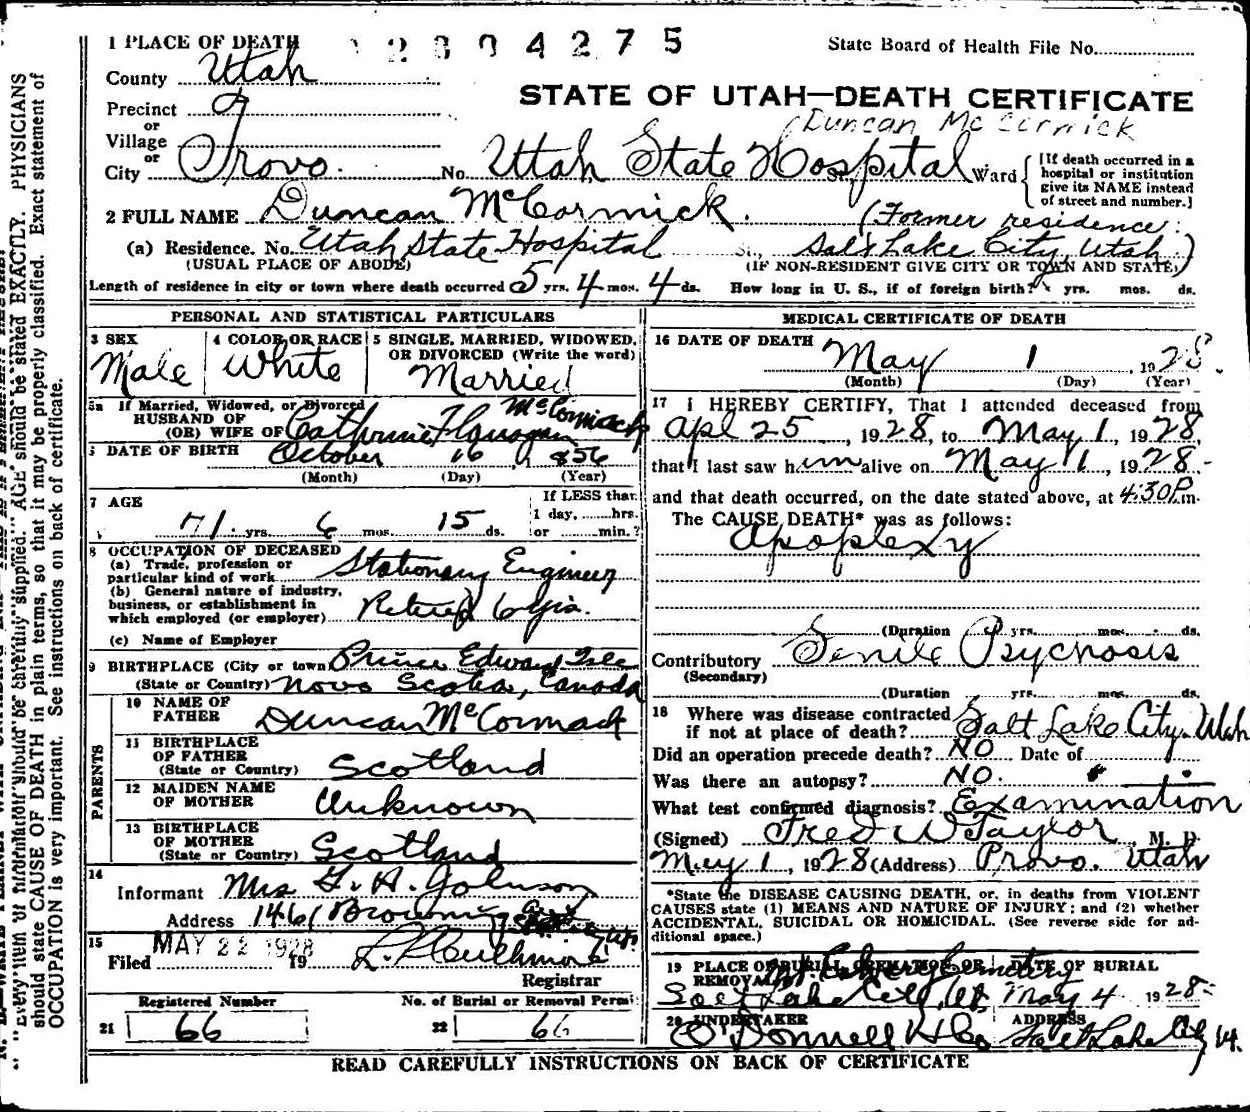 1 PLACE OF DEATH
2 8 0 4 2 7 5
State Board of Health File No.
County Utah
STATE OF UTAH—DEATH CERTIFICATE
Precinct
or
Village
or
City Provo. No. Utah State Hospital St., Ward
Duncan McCormick
[If death occurred in a hospital or institution give its NAME instead of street and number.]
2 FULL NAME Duncan McCormick. (Former residence:
(a) Residence. No. Utah State Hospital St., Salt Lake City, Utah)
(USUAL PLACE OF ABODE) (IF NON-RESIDENT GIVE CITY OR TOWN AND STATE)
Length of residence in city or town where death occurred 5 yrs. 4 mos. 4 ds. How long in U. S., if of foreign birth? yrs. mos. ds.
PERSONAL AND STATISTICAL PARTICULARS
3 SEX Male
4 COLOR OR RACE White
5 SINGLE, MARRIED, WIDOWED, OR DIVORCED (Write the word) Married
5a If Married, Widowed, or Divorced
HUSBAND OF
(OR) WIFE OF Catherine Flanagan McCormack
6 DATE OF BIRTH October 16 1856
(Month) (Day) (Year)
7 AGE
71 yrs. 6 mos. 15 ds.
If LESS than 1 day, hrs. or min.?
8 OCCUPATION OF DECEASED
(a) Trade, profession or particular kind of work Stationary Engineer
(b) General nature of industry, business, or establishment in which employed (or employer) Retired 6 yrs.
(c) Name of Employer
9 BIRTHPLACE (City or town) Prince Edward Isle
(State or Country) Nova Scotia, Canada
PARENTS
10 NAME OF FATHER Duncan McCormack
11 BIRTHPLACE OF FATHER (State or Country) Scotland
12 MAIDEN NAME OF MOTHER Unknown
13 BIRTHPLACE OF MOTHER (State or Country) Scotland
14
Informant Mrs G. A. Johnson
Address 1461 Browning
15
Filed MAY 22 1928 19
Registrar
Registered Number
21 66
No. of Burial or Removal Permit
22 66
MEDICAL CERTIFICATE OF DEATH
16 DATE OF DEATH May 1, 1928
(Month) (Day) (Year)
17 I HEREBY CERTIFY, That I attended deceased from
Apl 25, 1928, to May 1, 1928,
that I last saw him alive on May 1, 1928
and that death occurred, on the date stated above, at 4:30 P.m.
The CAUSE DEATH* was as follows:
Apoplexy
(Duration yrs. mos. ds.
Contributory Senile Psychosis
(Secondary)
(Duration yrs. mos. ds.
18 Where was disease contracted
if not at place of death? Salt Lake City. Utah
Did an operation precede death? NO Date of
Was there an autopsy? NO.
What test confirmed diagnosis? Examination
(Signed) Fred W Taylor M. D.
May 1, 1928 (Address) Provo. Utah
*State the DISEASE CAUSING DEATH, or, in deaths from VIOLENT
CAUSES state (1) MEANS AND NATURE OF INJURY; and (2) whether
ACCIDENTAL, SUICIDAL OR HOMICIDAL. (See reverse side for ad-
ditional space.)
19 PLACE OF BURIAL, CREMATION OR REMOVAL Mt. Calvary Cemetery DATE OF BURIAL
Salt Lake City, Ut. May 4 1928
20 UNDERTAKER ADDRESS
O'Donnell & Co Salt Lake City Ut.
READ CAREFULLY INSTRUCTIONS ON BACK OF CERTIFICATE
should state CAUSE OF DEATH in plain terms, so that it may be properly classified. Exact statement of
OCCUPATION is very important. See instructions on back of certificate.